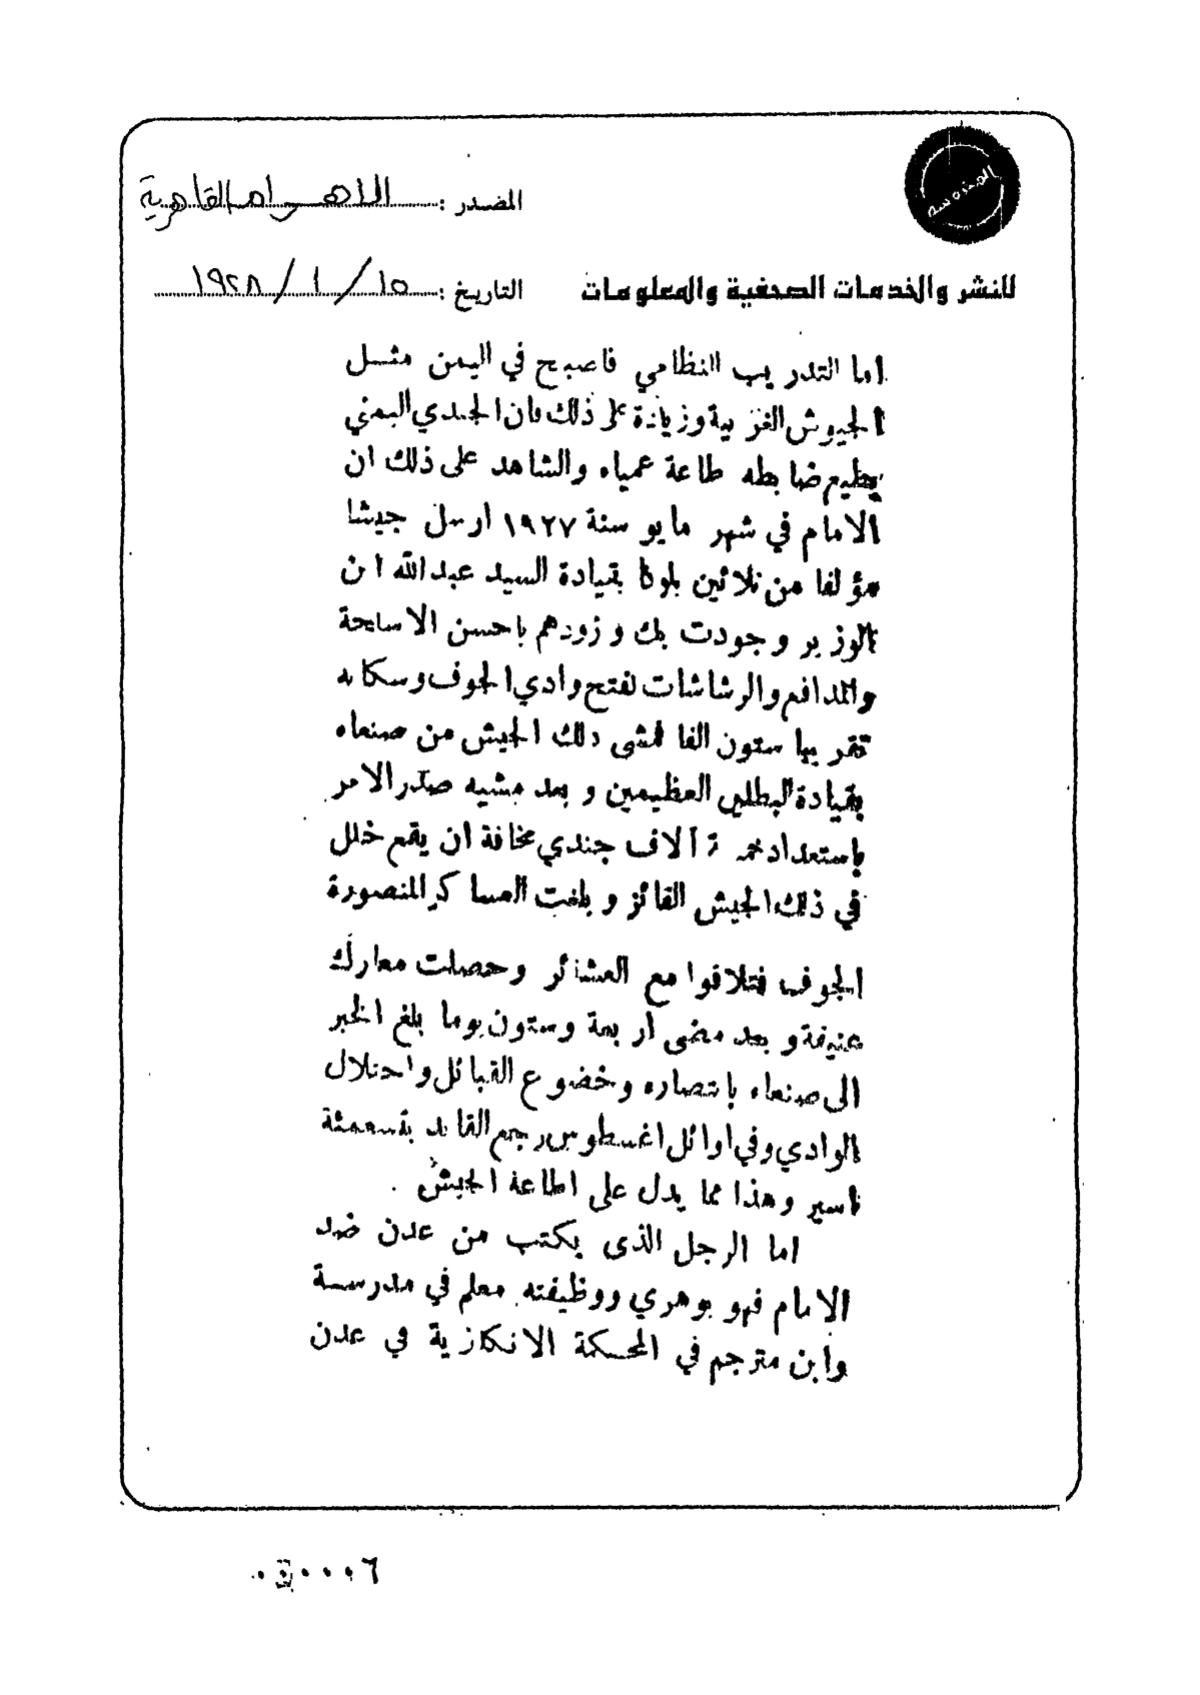 المصدر : الاهرام القاهرية
التاريخ : ١٥ / ١ / ١٩٢٨
للنشر والخدمات الصحفية والمعلومات
اما التدريب النظامي فاصبح في اليمن مثل
الجيوش الغربية وزيادة على ذلك فان الجندي اليمني
يطيع ضابطه طاعة عمياء والشاهد على ذلك ان
الامام في شهر مايو سنة ١٩٢٧ ارسل جيشا
مؤلفا من ثلاثين بلوكا بقيادة السيد عبدالله ابن
الوزير وجودت بك وزودهم باحسن الاسلحة
والمدافع والرشاشات لفتح وادي الجوف وسكانه
تقريبا ستون الفا فمشى ذلك الجيش من صنعاء
بقيادة البطلين العظيمين و بعد مشيه صدر الامر
باستعداد خمسة آلاف جندي مخافة ان يقع خلل
في ذلك الجيش الفائز و بلغت العساكر المنصورة
الجوف فتلاقوا مع العشائر وحصلت معارك
عنيفة و بعد مضى اربعة وستون يوما بلغ الخبر
الى صنعاء بانتصاره وخضوع القبائل واحتلال
الوادي وفي اوائل اغسطوس رجع القائد بتسعمئة
اسير وهذا مما يدل على اطاعة الجيش .
اما الرجل الذى يكتب من عدن ضد
الامام فهو بوهري ووظيفته معلم في مدرسة
وابن مترجم في المحكمة الانكليزية في عدن